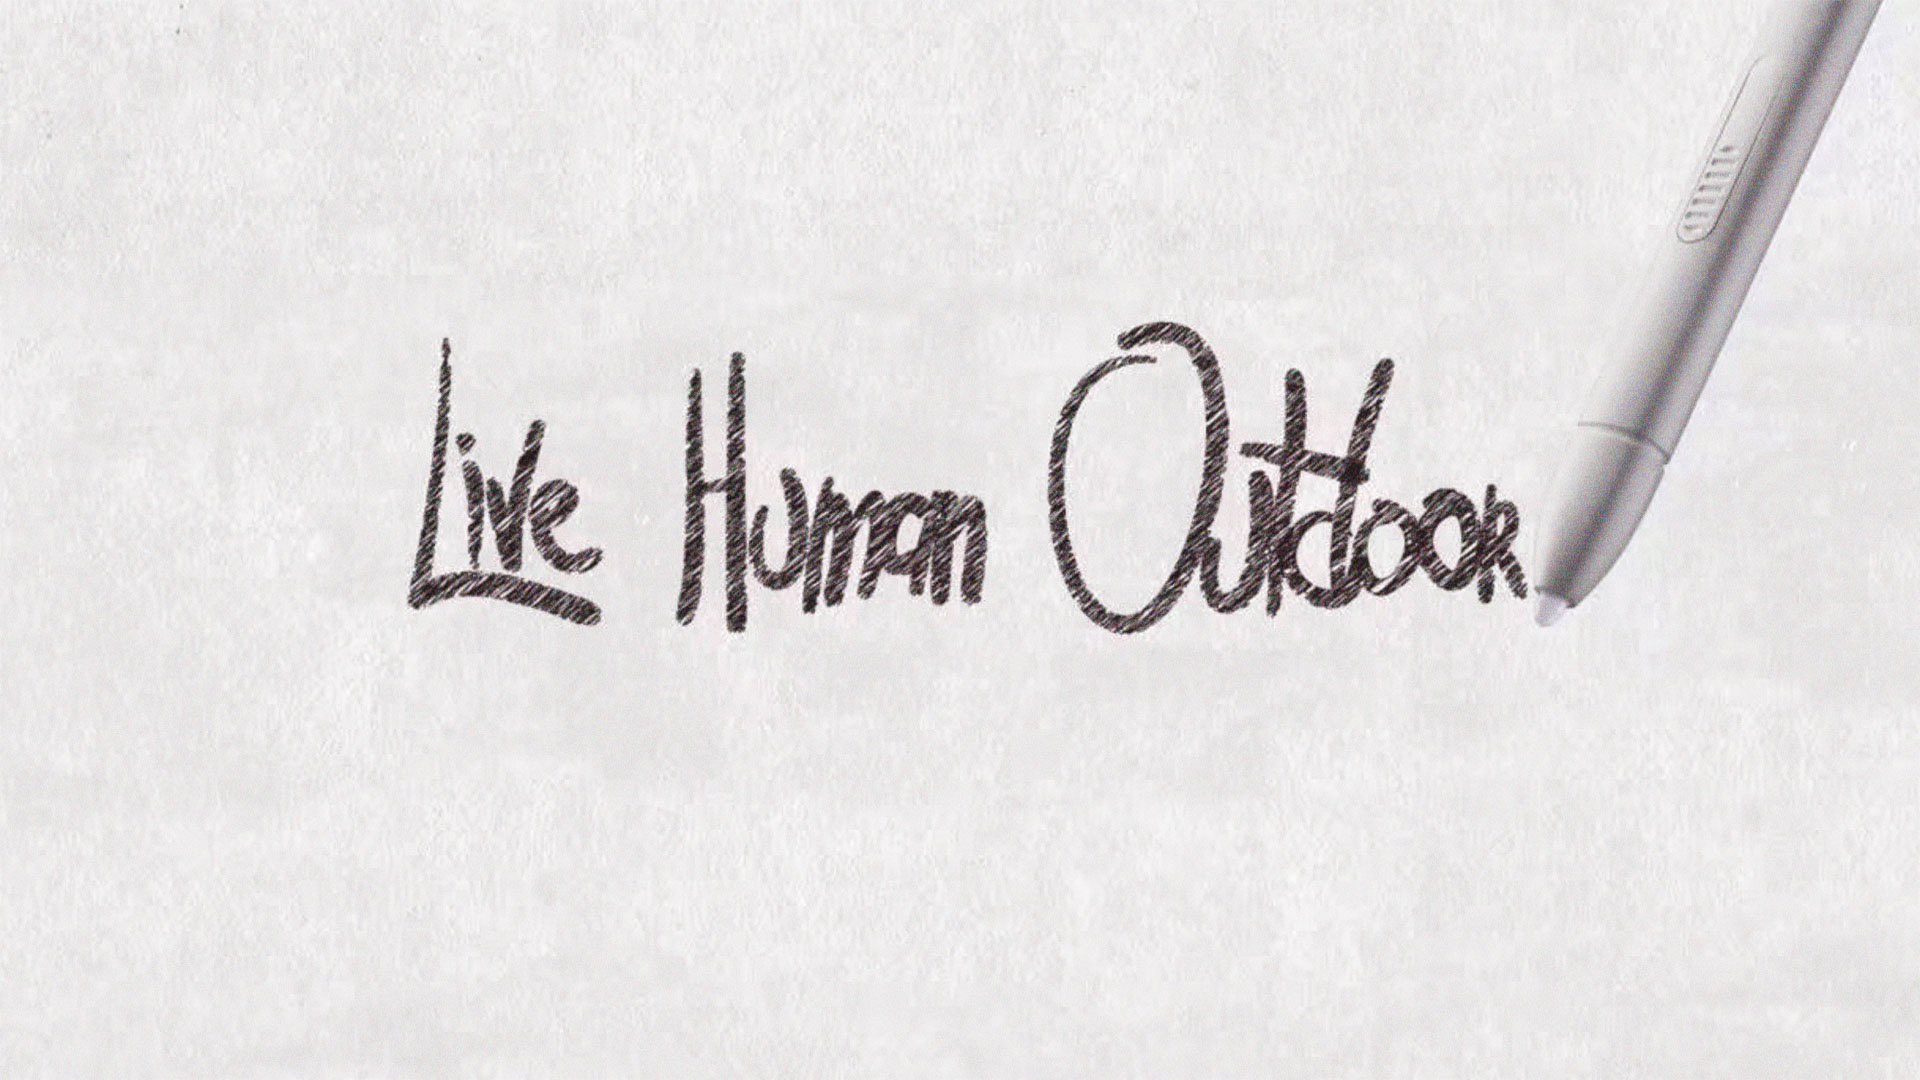 Live Human Outdoor